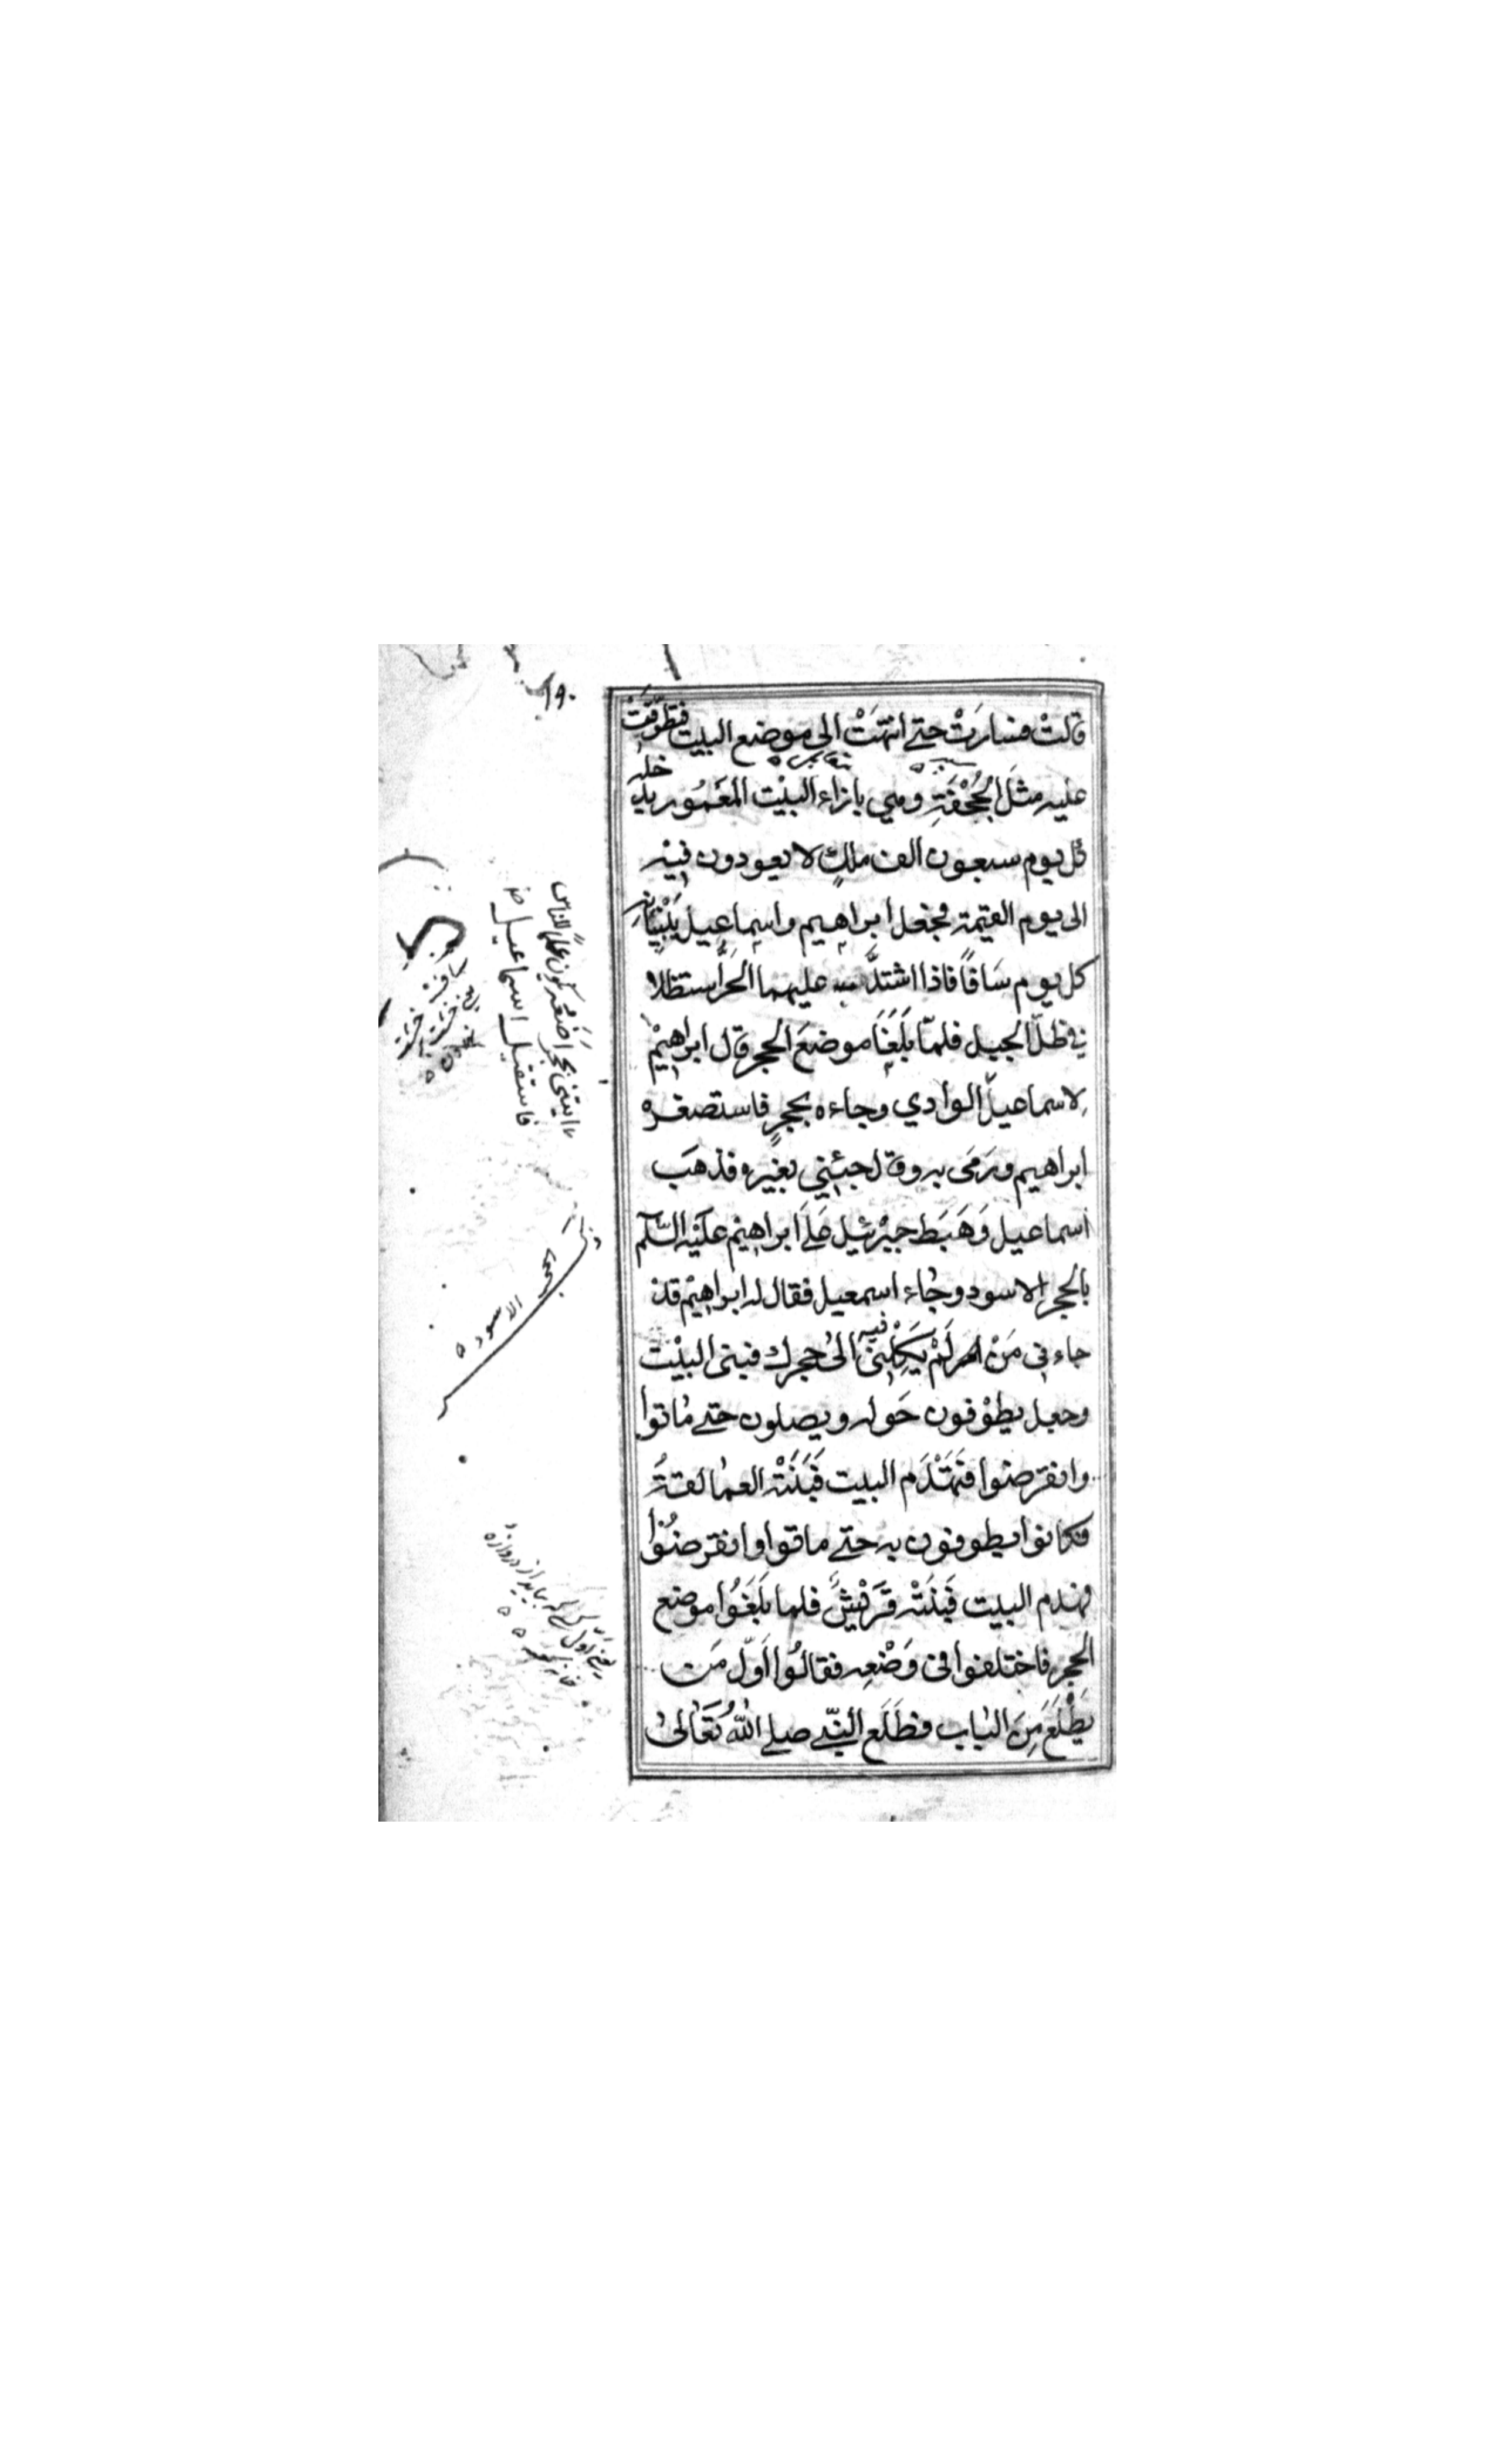 قالتْ فسارَتْ حتے انتهَتْ الى موضع البيت فتطوّقتْ
عليه مثلَ الجُحْفَةِ وهي بازاء البيْت المَعمُور يدخله
كل يوم سبعون الف ملكٍ لا يعودون فيْه
الى يوم القيمة فجعل ابراهيم واسماعيل يَبْنِيَانِه
كل يوم سَاقًا فاذا اشتدَّ عليهما الحَرُّ استظلا
في ظلّ الجبل فلمّا بَلَغَا موضعَ الحجر قال ابراهيمْ
لاسماعيل الوادي وجاءه بحجرٍ فاستصغره
ابراهيم ورَمَى به وقال جئني بغيره فذهبَ
اسماعيل وَهَبَط جبْرئيل عَلَى ابراهيم عليْه السَّلم
بالحجر الاسود وجاء اسمعيل فقال له ابراهيْم قد
جاءني مَنْ لَمْ يَكِلْنى فيه الى حجرك فبنى البيْت
وجعل يطوْفون حَوله ويصلون حتے ماتوا
وانقرضوا فتَهَدّم البيت فَبَنَتْه العمالقةُ
فكانوا يطوفون به حتے ماتوا وانقرضُوا
فهدم البيت فَبَنَتْه قرَيْش فلما بَلَغُوا موضع
الحجر فاختلفوا فى وَضْعِه فقالُوا اَوّل مَن
يَطْلَع مِنَ الباب فطَلَع النبّے صلى اللهُ تعَالىٰ
١٩٠
ايتنى بحجر اضَعُه يكون عَلَمًا للناس
فاستقبل اسماعيل
الحجر الاسود